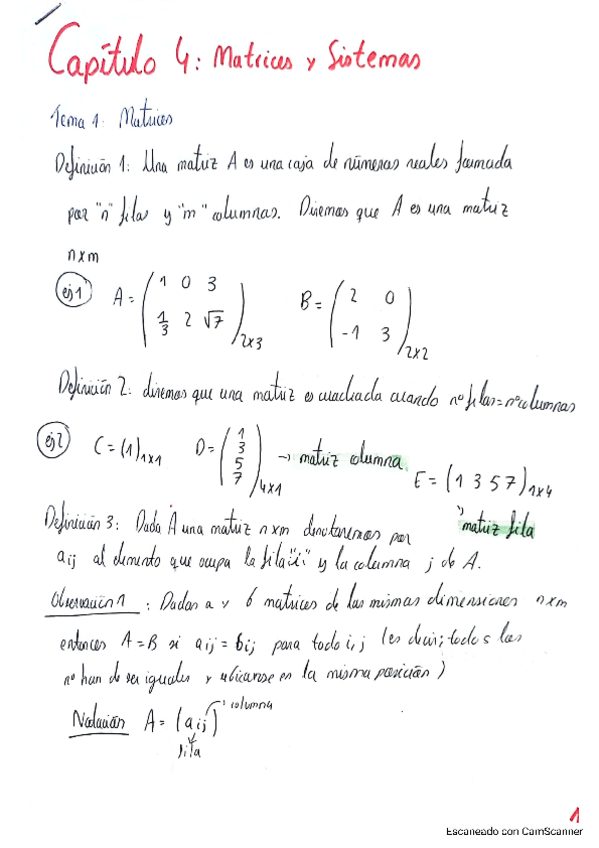 Capítulo 4: Matrices y Sistemas
Tema 1: Matrices
Definición 1: Una matriz A es una caja de números reales formada
por "n" filas y "m" columnas. Diremos que A es una matriz
nxm
ej 1 A = ( 1 0 3 B = ( 2 0
1/3 2 √7 )2x3 -1 3 )2x2
Definición 2: diremos que una matriz es cuadrada cuando nº filas=nºcolumnas
ej 2 C = (1)1x1 D = ( 1 3 5 7 )4x1 → matriz columna E = (1 3 5 7)1x4
matriz fila
Definición 3: Dada A una matriz nxm denotaremos por
aij al elemento que ocupa la fila "i" y la columna j de A.
Observación 1: Dadas a y b matrices de las mismas dimensiones nxm
entonces A=B si aij = bij para todo i,j (es decir; todos los
nº han de ser iguales y ubicarse en la misma posición)
Notación A = (aij) columna
fila
1
Escaneado con CamScanner